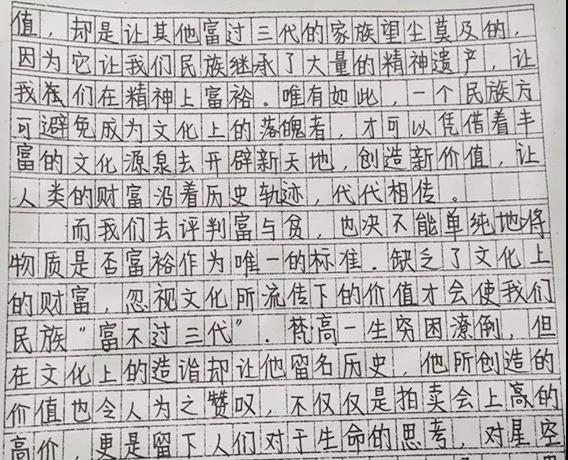 值，却是让其他富过三代的家族望尘莫及的，
因为它让我们民族继承了大量的精神遗产，让
我们在精神上富裕．唯有如此，一个民族方
可避免成为文化上的落魄者，才可以凭借着丰
富的文化源泉去开辟新天地，创造新价值，让
人类的财富沿着历史轨迹，代代相传。
而我们去评判富与贫，也决不能单纯地将
物质是否富裕作为唯一的标准．缺乏了文化上
的财富，忽视文化所流传下的价值才会使我们
民族“富不过三代”．梵高一生穷困潦倒，但
在文化上的造诣却让他留名历史，他所创造的
价值也令人为之赞叹，不仅仅是拍卖会上高的
高价，更是留下人们对于生命的思考，对星空